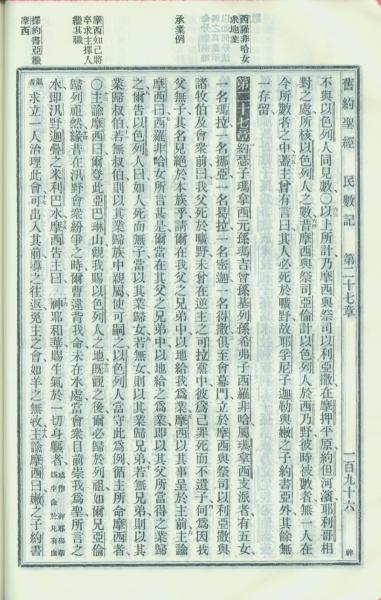 舊約聖經　民數記　第二十七章　一百九十六　神
西羅非哈女求地業
承業例
摩西知己將卒求主擇人繼其職
擇約書亞繼摩西
不與以色列人同見數〇以上所計乃摩西與祭司以利亞撒在摩押平原約但河濱耶利哥相
對之處所核以色列人之數昔摩西與祭司亞倫計以色列人於西乃野彼時被數者無一人在
今所數者之中蓋主曾有言曰其人必死於曠野故耶孚尼子迦勒與嫩之子約書亞外其餘無
一存留
第二十七章約瑟子瑪拿西元孫瑪吉曾孫基列孫希弗子西羅非哈屬瑪拿西支派者有五女
一名瑪拉一名挪亞一名曷拉一名密迦一名得撒俱至會幕門立於摩西與祭司以利亞撒
諸牧伯及會眾前曰我父死於曠野未嘗在逆主之可拉黨中彼為己罪死而不遺子何為因我
父無子其名見絕於本族乎請爾在我父之兄弟中以地給我為業摩西以其事呈於主前主諭
摩西曰西羅非哈女所言甚是爾當在其父之兄弟中以地給之為業即以其父所當得之業歸
之爾告以色列人曰如人死而無子當以其業歸女若無女則以其業歸兄弟若無兄弟則以其
業歸叔伯若無叔伯則以其業歸族中親屬使可嗣之以色列人當守此為例循主所命摩西者
〇主諭摩西曰爾登此亞巴琳山觀我賜以色列人之地既觀之後爾必歸於列祖如爾兄亞倫
歸列祖然緣昔在汛野會眾紛爭之時爾曹違背我命未在水處當會眾目前崇我為聖所言之
水即汛野迦疊之米利巴水摩西告主曰神耶和華賜生氣於一切身軀者
求立一人治理此會可出入其前導之往返免主之會如羊之無牧主諭摩西曰嫩之子約書